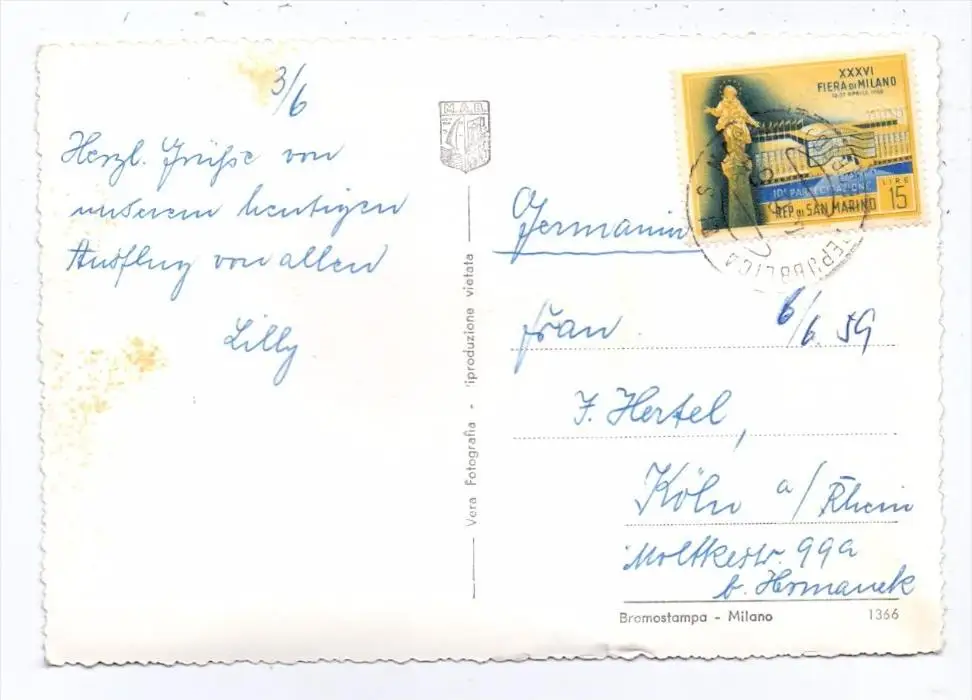 3/6
Herzl. Grüße von
unserem heutigen
Ausflug von allen
Lilly
M.A.R.
Vera Fotografia - riproduzione vietata
XXXVI
FIERA DI MILANO
12-27 APRILE 1958
10ª PARTECIPAZIONE
REP. DI SAN MARINO
LIRE
15
REPUBBLICA DI S.
Germania
Frau
6/6. 59
J. Hertel,
Köln a/Rhein
Moltkestr. 99a
b. Hermanek
Bromostampa - Milano
1366